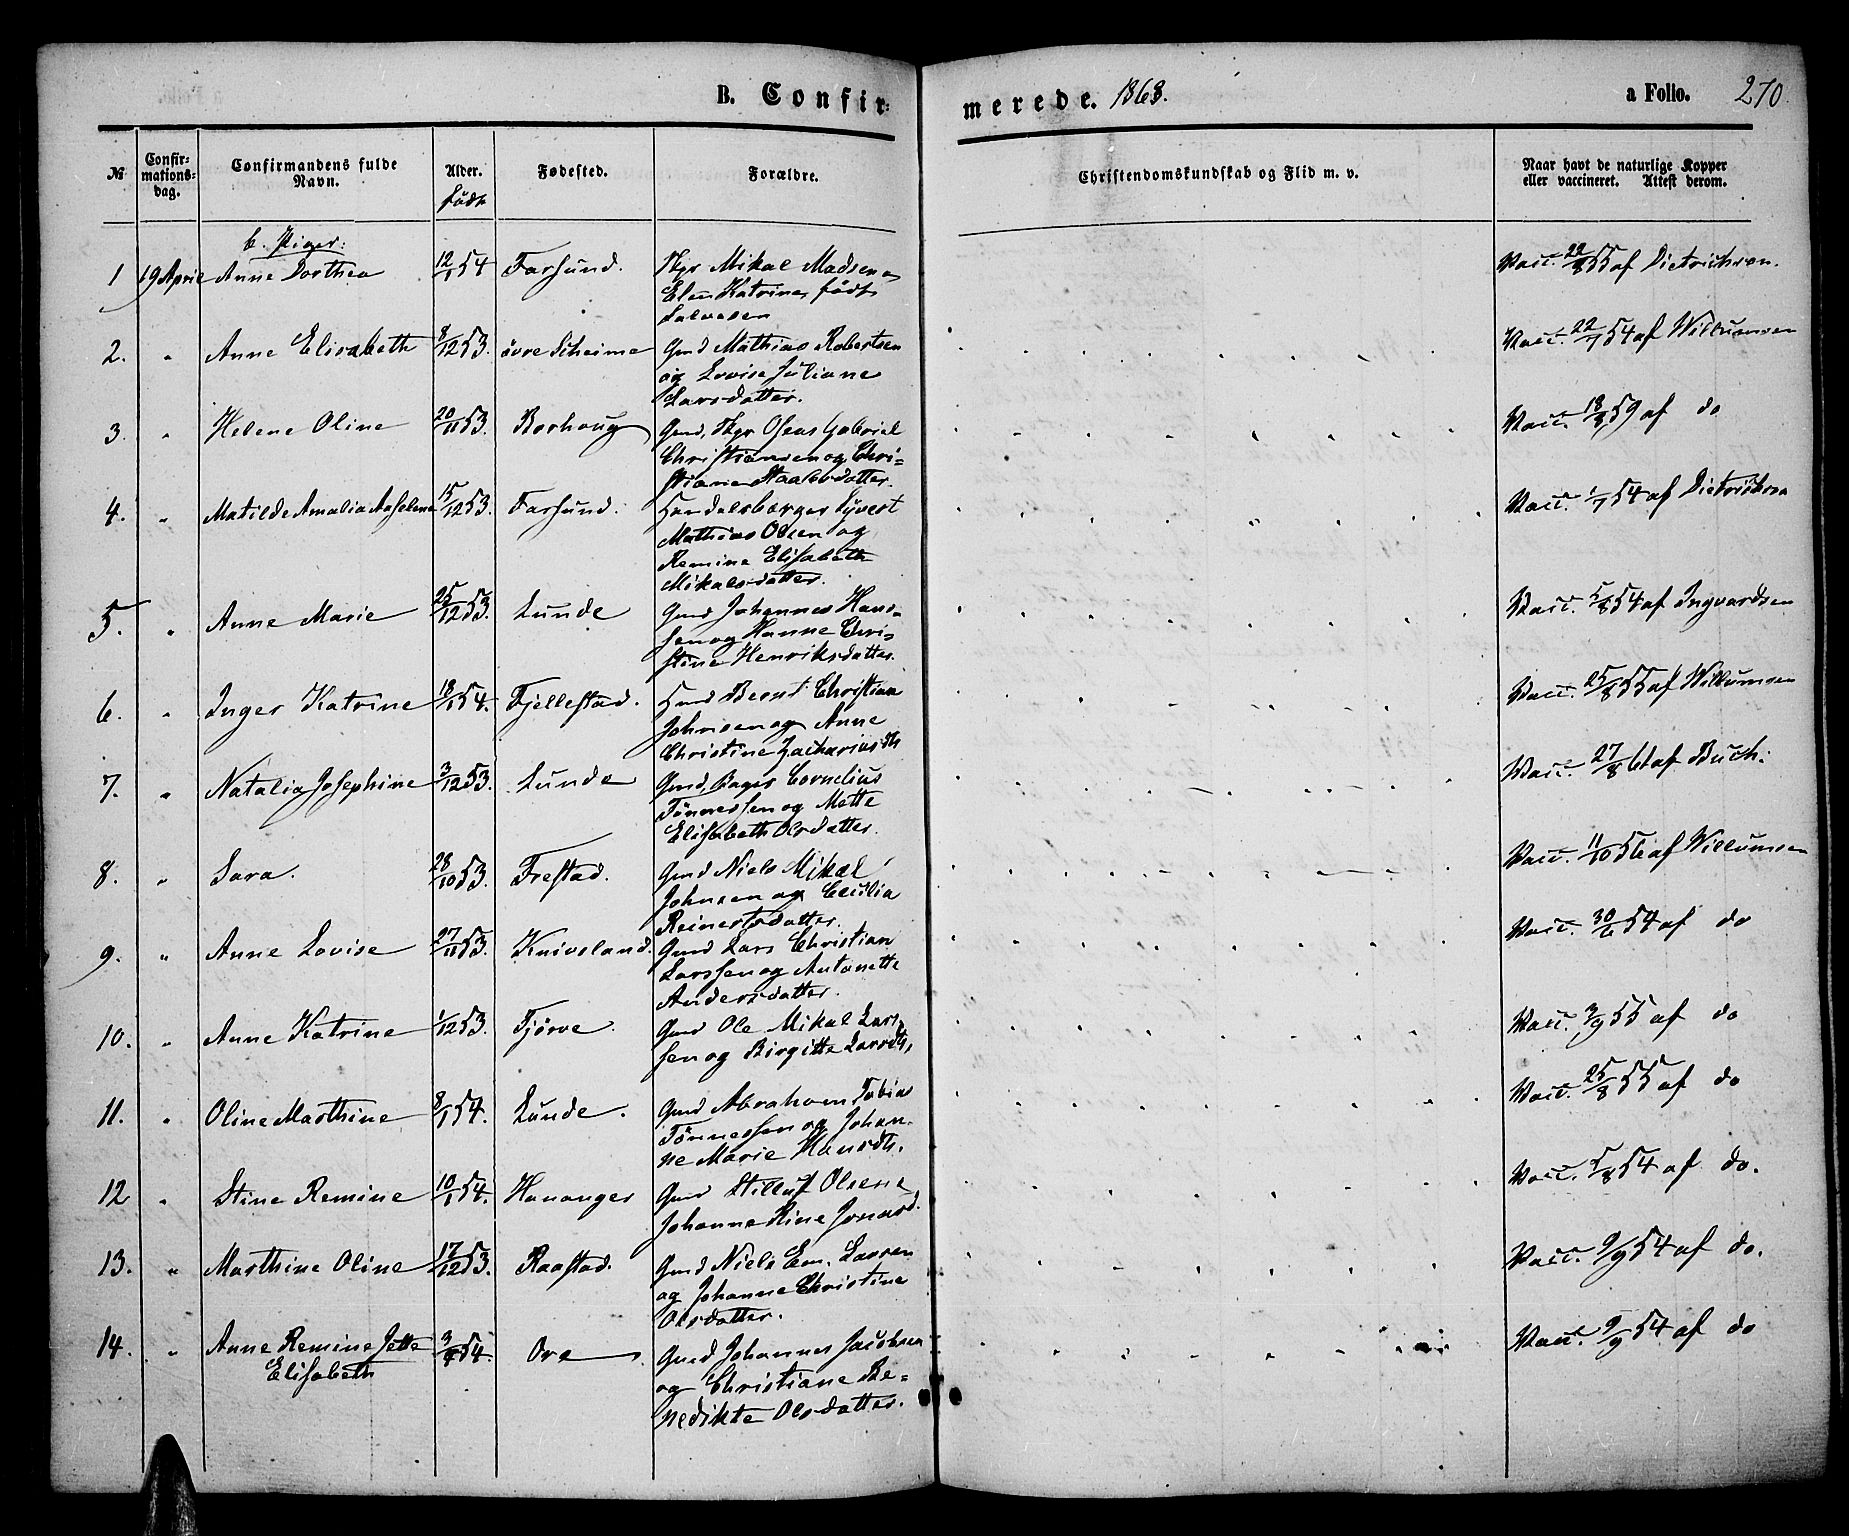 B. Confir-
merede. 1868.
a Folio. 270.
№
Confir-
mations-
dag.
Confirmandens fulde
Navn.
Alder.
født
Fødested.
Forældre.
Christendomskundskab og Flid m. v.
Naar havt de naturlige Kopper
eller vaccineret. Attest derom.
b. Piger:
1 19 April Anne Dorthea 12/1 54 Farsund. Mikal Madsen
Elen Katrine, født
Salvesen
Vacc. 55 af Dietrichson.
2. " Anne Elisabeth 8/12 53. øvre Skeime Gmd Mathias Robertsen
og Lovise Juliane
Larsdatter.
Vacc. 22/7 54 af Willumsen
3. " Helene Oline 20/11 53. Borhoug Gmd, Oseas Gabriel
Christiansen og Chri-
stiane Staalesdatter.
Vacc. 18/8 59 af do
4. " Matilde Amalia Aaselene 15/12 53. Farsund. Handelsborger Syvert
Mathias Olsen og
Remine Elisabeth
Mikalsdatter.
Vacc. 1/7 54 af Dietrichson
5. " Anne Marie 25/12 53. Lunde Gmd Johannes Hans-
sen og Hanne Chri-
stine Henriksdatter.
Vacc. 5/8 54 af Ingvardsen
6. " Inger Katrine 18/1 54. Fjellestad. Bernt Christian
Johnsen og Anne
Christine Zachariasdt.
Vacc. 25/8 55 af Willumsen
7. " Natalia Josephine 3/12 53. Lunde Gmd, Bager Cornelius
Tönnessen og Mette
Elisabeth Olsdatter.
Vacc. 27/8 61 af Buch.
8. " Sara. 28/10 53. Frestad. Gmd Niels Mikal
Johnsen og Cecilia
Reinertsdatter.
Vacc. 11/10 56 af Willumsen
9. " Anne Lovise 27/11 53. Knivsland. Gmd Lars Christian
Larssen og Antonette
Andersdatter.
Vacc. 30/6 54 af do
10. " Anne Katrine 1/12 53. Tjörve. Gmd Ole Mikal Lars-
sen og Birgitte Larsdt.
Vacc. 3/9 55 af do
11. " Oline Marthine 8/1 54. Lunde. Gmd Abraham Tobias
Tönnessen og Johan-
ne Marie Hansdt.
Vacc. 25/8 55 af do
12 " Stine Remine 10/1 54. Hananger Gmd Olsen
Johanne Stine Jonasd.
Vacc. 5/8 54 af do.
13. " Marthine Oline 17/12 53. Raastad. Gmd Niels Em. Larsen
og Johanne Christine
Olsdatter.
Vacc. 9/9 54 af do.
14. " Anne Remine Jette
Elisabeth
3/4 54. Ore Gmd Johannes Jacobsen
og Christiane Be-
nedikte Olsdatter.
Vacc. 9/9 54 af do